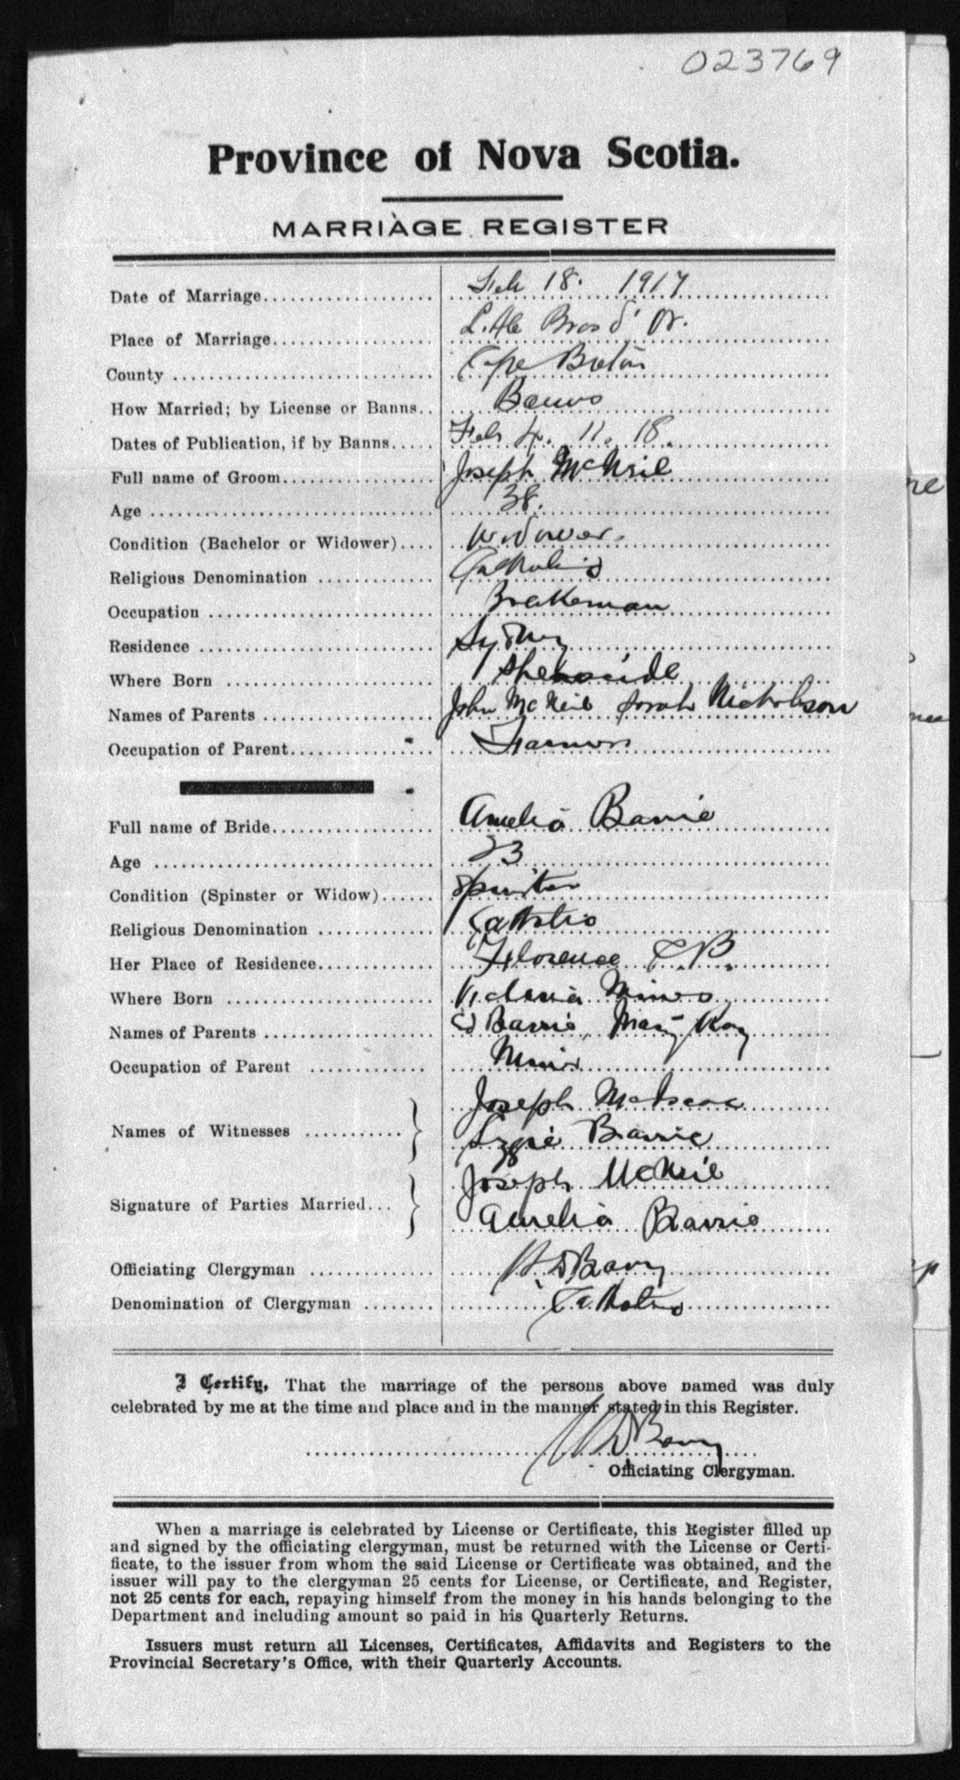 023769
Province of Nova Scotia.
MARRIAGE REGISTER
Date of Marriage Feb 18. 1917
Place of Marriage Little Bras d'Or.
County Cape Breton
How Married; by License or Banns Banns
Dates of Publication, if by Banns Feb 4. 11. 18.
Full name of Groom Joseph McNeil
Age 38.
Condition (Bachelor or Widower) Widower.
Religious Denomination Catholic
Occupation Brakeman
Residence Sydney
Where Born
Names of Parents John McNeil Sarah Nicholson
Occupation of Parent Farmer
Full name of Bride Amelia Barrie
Age 23
Condition (Spinster or Widow) Spinster
Religious Denomination Catholic
Her Place of Residence Florence C.B.
Where Born Victoria Mines
Names of Parents Barrie, Mary
Occupation of Parent Miner
Joseph McIsaac
Names of Witnesses
Lizzie Barrie
Joseph McNeil
Signature of Parties Married
Amelia Barrie
Officiating Clergyman
Denomination of Clergyman Catholic
I Certify, That the marriage of the persons above named was duly
celebrated by me at the time and place and in the manner stated in this Register.
Officiating Clergyman.
When a marriage is celebrated by License or Certificate, this Register filled up
and signed by the officiating clergyman, must be returned with the License or Certi-
ficate, to the issuer from whom the said License or Certificate was obtained, and the
issuer will pay to the clergyman 25 cents for License, or Certificate, and Register,
not 25 cents for each, repaying himself from the money in his hands belonging to the
Department and including amount so paid in his Quarterly Returns.
Issuers must return all Licenses, Certificates, Affidavits and Registers to the
Provincial Secretary's Office, with their Quarterly Accounts.